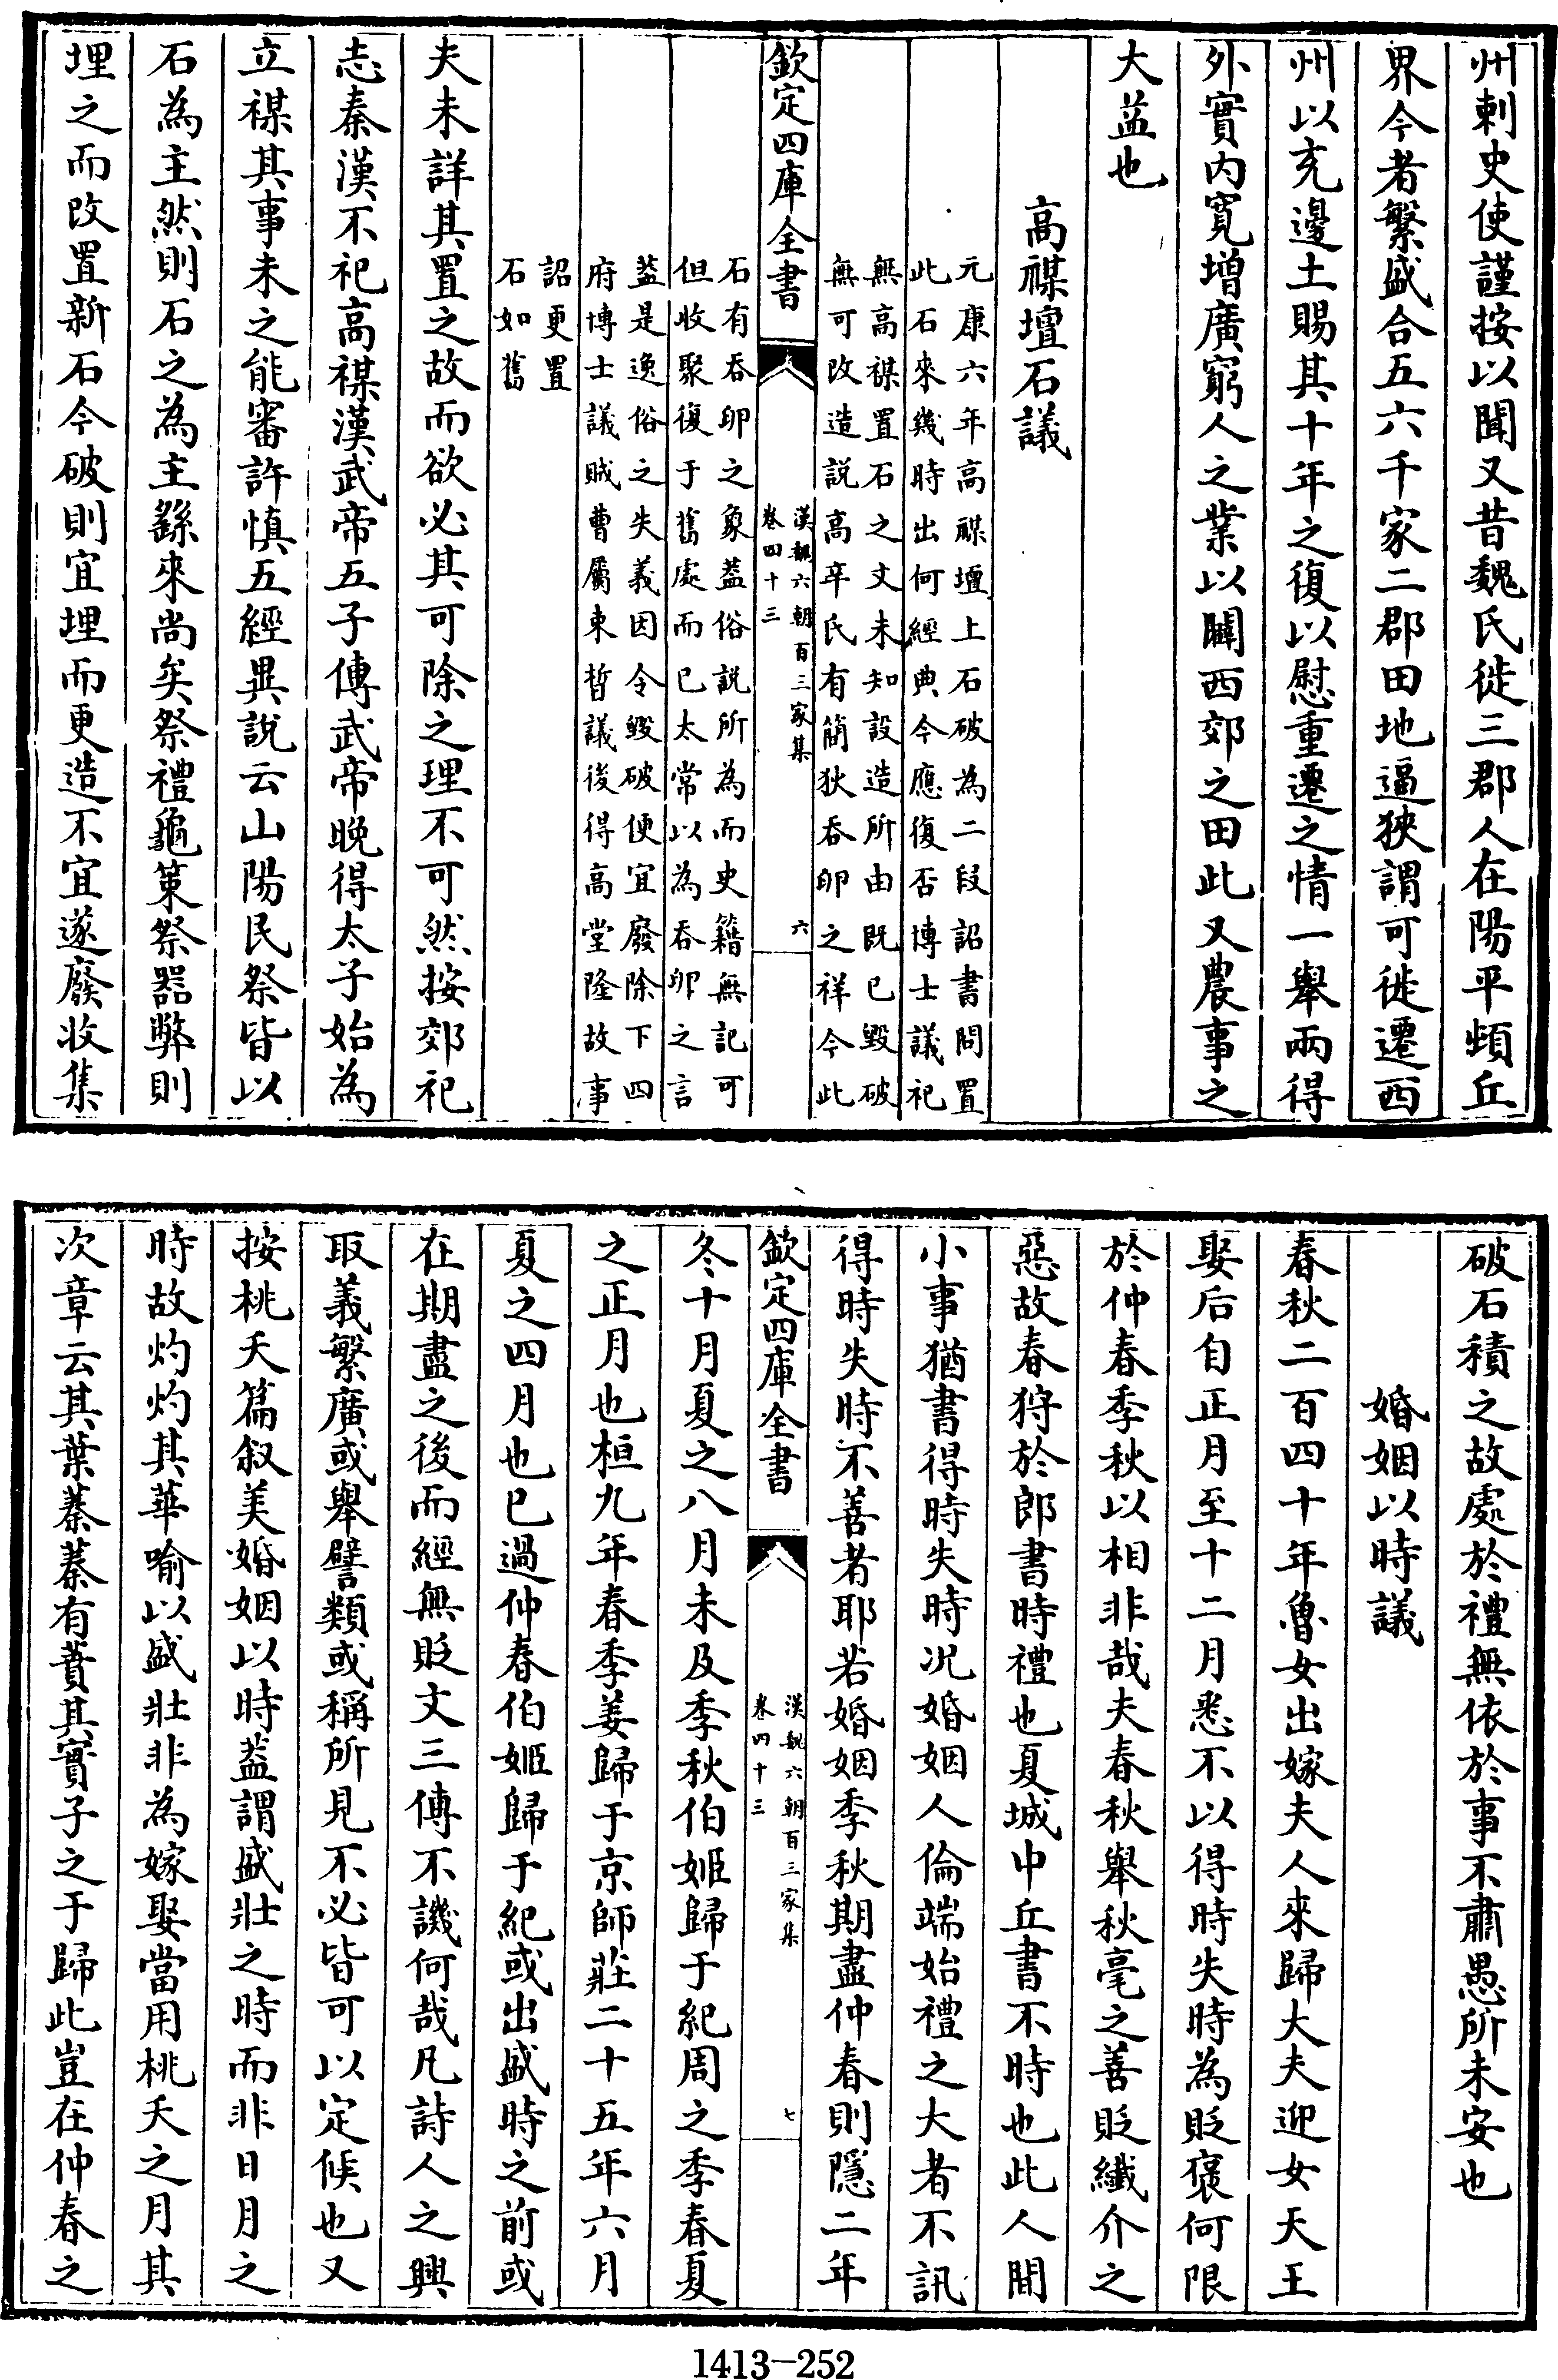 州刺史使謹按以聞又昔魏氏徙三郡人在陽平頓丘
界今者繁盛合五六千家二郡田地逼狹謂可徙遷西
州以充邊土賜其十年之復以慰重遷之情一舉兩得
外實内寛增廣窮人之業以闢西郊之田此又農事之
大益也
高禖壇石議
元康六年高禖壇上石破為二段詔書問置
此石來幾時出何經典今應復否博士議祀
無高禖置石之文未知設造所由既已毀破
無可改造説高辛氏有簡狄吞卵之祥今此
欽定四庫全書
漢魏六朝百三家集
卷四十三
六
石有吞卵之象蓋俗説所為而史籍無記可
但收聚復于舊處而已太常以為吞卵之言
蓋是逸俗之失義因令毀破便宜廢除下四
府博士議賊曹屬束晳議後得高堂隆故事
詔更置
石如舊
夫未詳其置之故而欲必其可除之理不可然按郊祀
志秦漢不祀高禖漢武帝五子傳武帝晚得太子始為
立禖其事未之能審許慎五經異說云山陽民祭皆以
石為主然則石之為主繇來尚矣祭禮龜策祭器弊則
埋之而改置新石今破則宜埋而更造不宜遂廢收集
破石積之故處於禮無依於事不肅愚所未安也
婚姻以時議
春秋二百四十年魯女出嫁夫人來歸大夫迎女天王
娶后自正月至十二月悉不以得時失時為貶褒何限
於仲春季秋以相非哉夫春秋舉秋毫之善貶纖介之
惡故春狩於郎書時禮也夏城中丘書不時也此人間
小事猶書得時失時况婚姻人倫端始禮之大者不訊
得時失時不善者耶若婚姻季秋期盡仲春則隱二年
欽定四庫全書
漢魏六朝百三家集
卷四十三
七
冬十月夏之八月未及季秋伯姬歸于紀周之季春夏
之正月也桓九年春季姜歸于京師莊二十五年六月
夏之四月也已過仲春伯姬歸于紀或出盛時之前或
在期盡之後而經無貶文三傳不譏何哉凡詩人之興
取義繁廣或舉譬類或稱所見不必皆可以定候也又
按桃夭篇叙美婚姻以時蓋謂盛壯之時而非日月之
時故灼灼其華喻以盛壯非為嫁娶當用桃夭之月其
次章云其葉蓁蓁有蕡其實子之于歸此豈在仲春之
1413—252